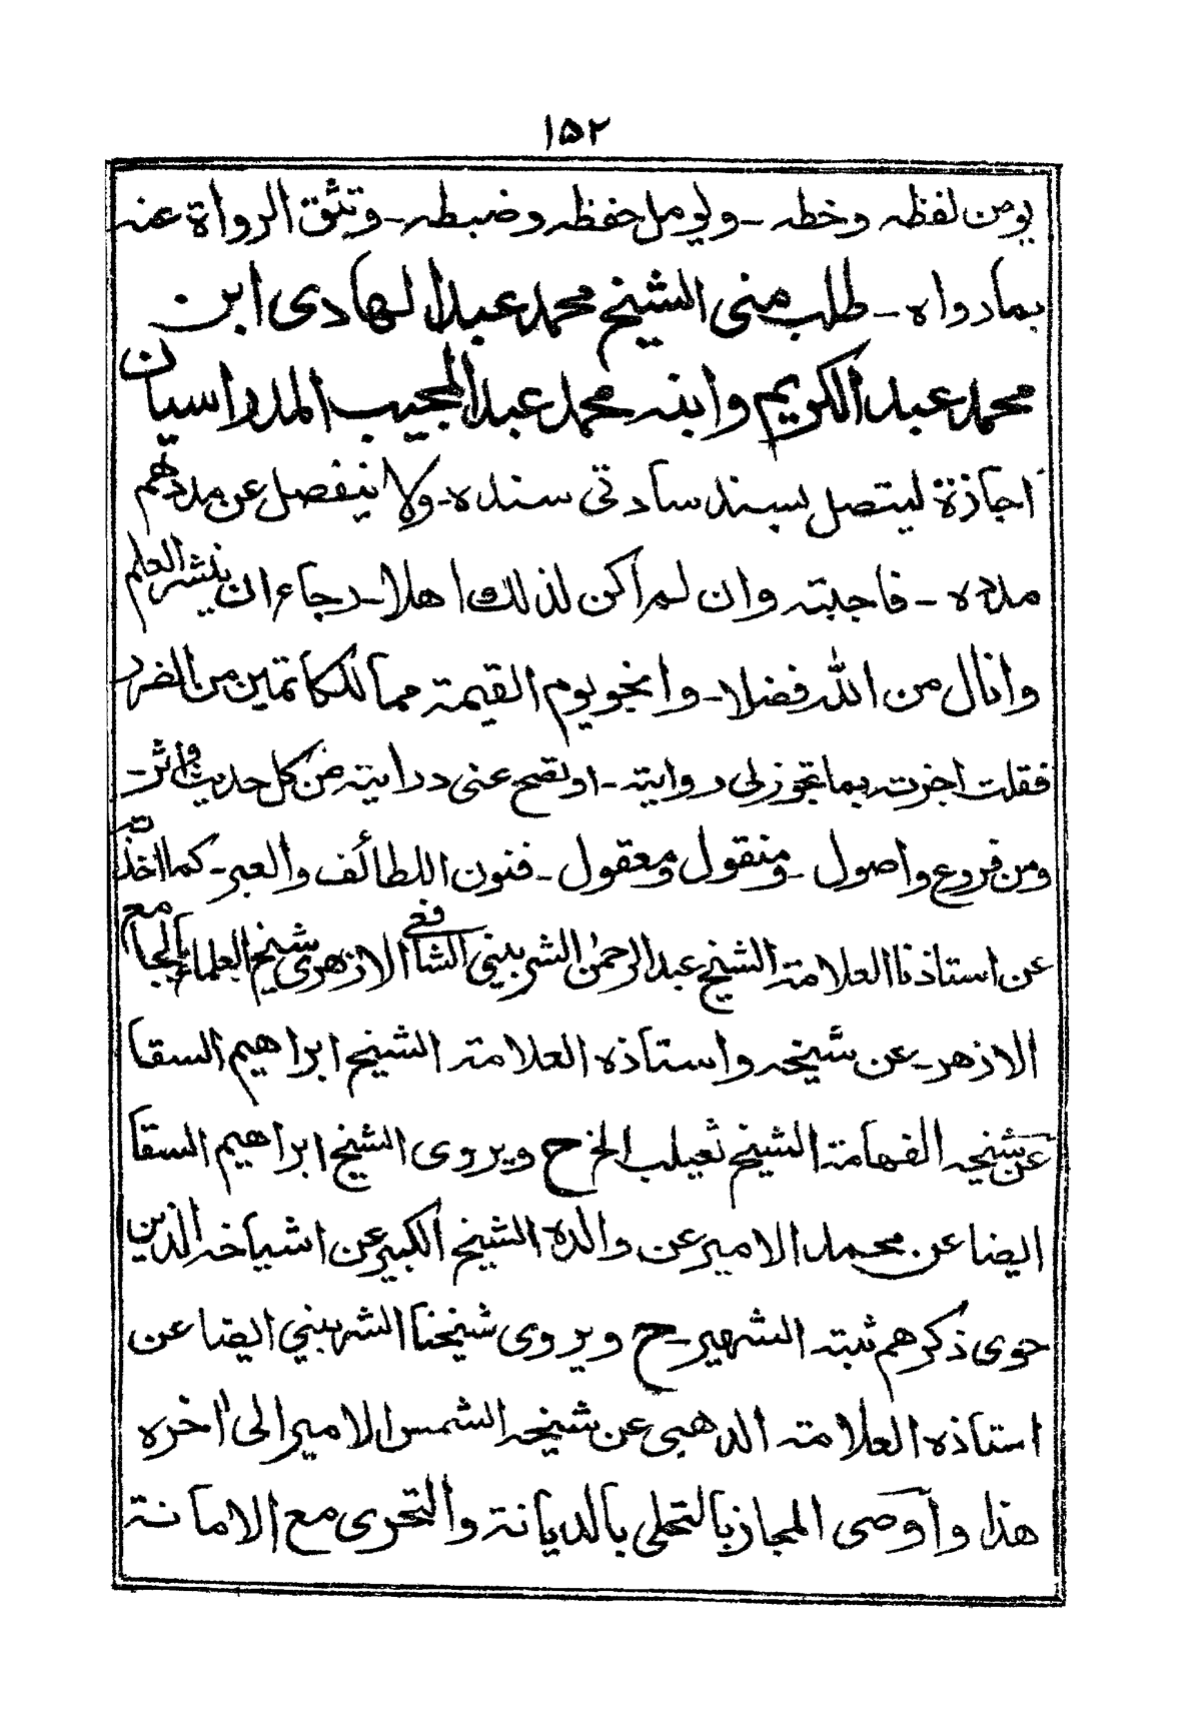 ١٥٢
يومن لفظه وخطه - ويومل حفظه وضبطه - وتثق الرواة عنه
بما رواه - طلب منى الشيخ محمد عبد الهادى ابن
محمد عبد الكريم وابنه محمد عبد المجيب المدراسيان
اجازة ليتصل بسند سادتى سنده - ولا ينفصل عن مددهم
مدده - فاجبته وان لم اكن لذلك اهلا - رجاء ان ينشر العلم
وانال من الله فضلا - وانجو يوم القيمة مما للكاتمين من الضرر
فقلت اجزته بما تجوز لى روايته - او تصح عنى درايته من كل حديث واثر -
ومن فروع واصول - ومنقول ومعقول - فنون اللطائف والعبر - كما اخذته
عن استاذنا العلامة الشيخ عبد الرحمٰن الشربينى الشافعى الازهرى شيخ العلماء بالجامع
الازهر - عن شيخه واستاذه العلامة الشيخ ابراهيم السقا
عن شيخه الفهامة الشيخ ثعيلب الخ ح ويروى الشيخ ابراهيم السقا
ايضا عن محمد الامير عن والده الشيخ الكبير عن اشياخه الذين
حوى ذكرهم ثبته الشهير - ح ويروى شيخنا الشربيني ايضا عن
استاذه العلامة الدهبى عن شيخه الشمس الامير الى اٰخره
هذا وأوصى المجاز بالتحلى بالديانة والتحرى مع الامانة